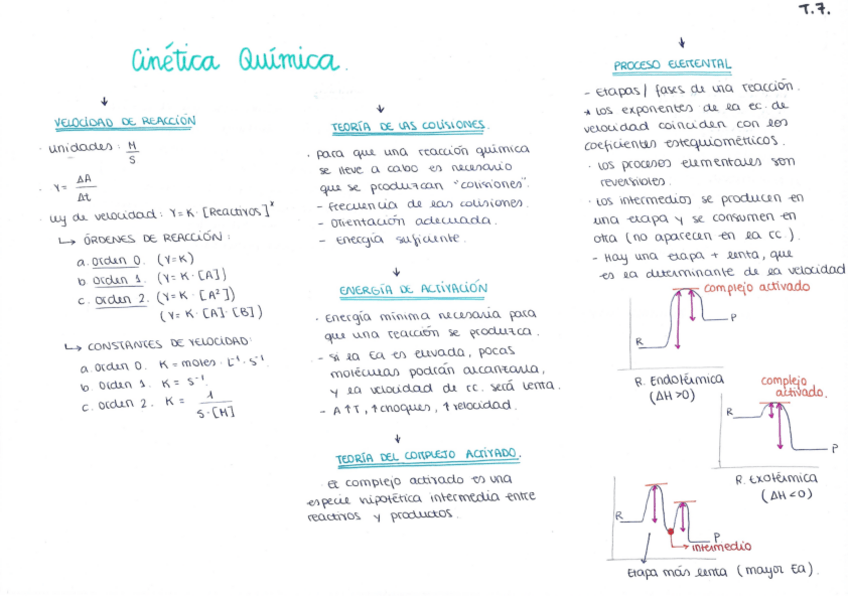 T.7.
Cinética Química.
VELOCIDAD DE REACCIÓN
· unidades: M/S
· V = ΔA/Δt
· ley de velocidad: V=K·[Reactivos]ˣ
↳ ÓRDENES DE REACCIÓN:
a. orden 0. (V=K)
b orden 1. (V=K·[A])
c. orden 2. (V=K·[A²])
(V=K·[A]·[B])
↳ CONSTANTES DE VELOCIDAD:
a orden 0. K=moles·L⁻¹·S⁻¹.
b. orden 1. K= S⁻¹.
c. orden 2. K= 1/S·[M]
TEORÍA DE LAS COLISIONES.
· para que una reacción química
se lleve a cabo es necesario
que se produzcan "colisiones".
- Frecuencia de las colisiones.
- Orientación adecuada.
- Energía suficiente.
ENERGÍA DE ACTIVACIÓN
· Energía mínima necesaria para
que una reacción se produzca.
- Si la Ea es elevada, pocas
moléculas podrán alcanzarla,
y la velocidad de rc. será lenta.
- A↑T, ↑choques, ↑velocidad.
TEORÍA DEL COMPLEJO ACTIVADO.
· El complejo activado es una
especie hipotética intermedia entre
reactivos y productos.
PROCESO ELEMENTAL
- Etapas/ fases de una reacción.
* Los exponentes de la ec. de
velocidad coinciden con los
coeficientes estequiométricos.
· Los procesos elementales son
reversibles.
· Los intermedios se producen en
una etapa y se consumen en
otra (no aparecen en la rc).
- Hay una etapa + lenta, que
es la determinante de la velocidad
complejo activado
R
P
R. Endotérmica
(ΔH>0)
complejo
activado.
R
P
R. Exotérmica
(ΔH<0)
R
P
intermedio
Etapa más lenta (mayor Ea).